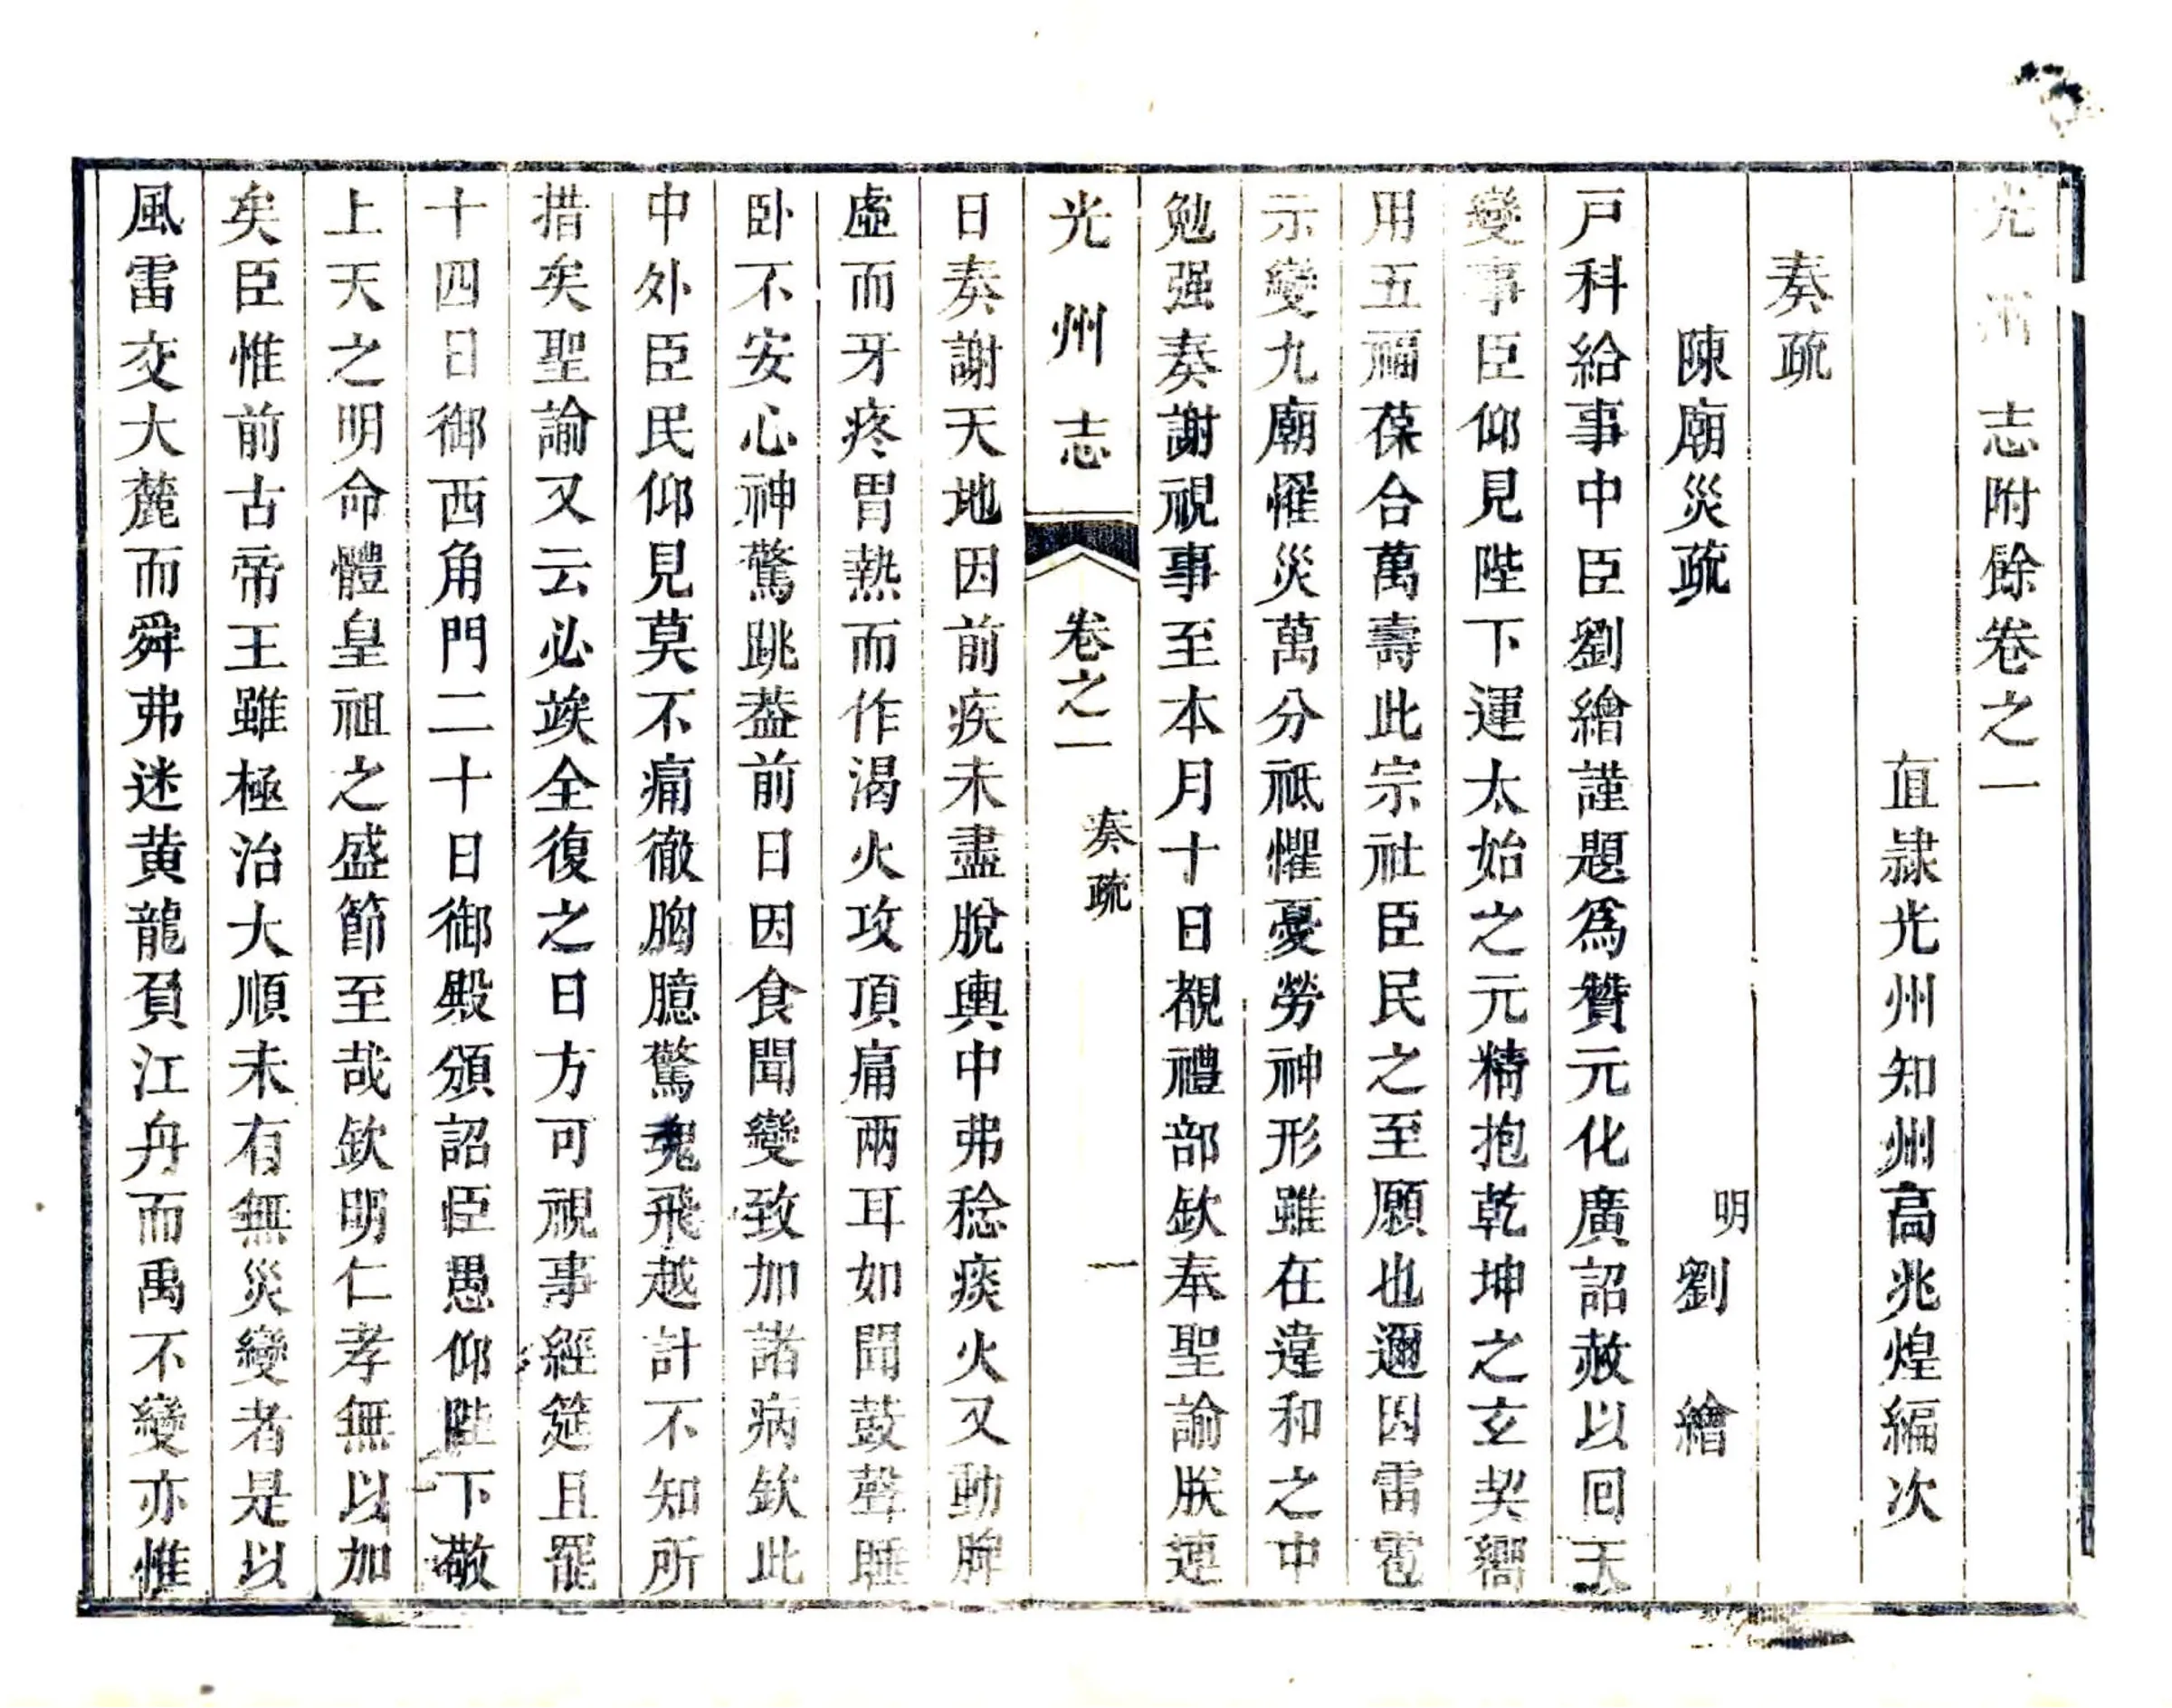 光州志附餘卷之一
直隷光州知州高兆煌編次
奏疏
陳廟災疏 明劉繪
戸科給事中臣劉繪謹題爲贊元化廣詔赦以回天
變事臣仰見陛下運太始之元精抱乾坤之玄契嚮
用五福葆合萬壽此宗社臣民之至願也邇因雷雹
示變九廟罹災萬分祗懼憂勞神形雖在違和之中
勉强奏謝視事至本月十日覩禮部欽奉聖諭朕連
光州志 卷之一 奏疏 一
日奏謝天地因前疾未盡脫輿中弗稔痰火又動脾
虛而牙疼胃熱而作渴火攻頂痛兩耳如聞鼓聲睡
卧不安心神驚跳葢前日因食聞變致加諸病欽此
中外臣民仰見莫不痛徹胸臆驚魂飛越計不知所
措矣聖諭又云必竢全復之日方可視事經筵且罷
十四日御西角門二十日御殿頒詔臣愚仰陛下敬
上天之明命體皇祖之盛節至哉欽明仁孝無以加
矣臣惟前古帝王雖極治大順未有無災變者是以
風雷交大麓而舜弗迷黃龍負江舟而禹不變亦惟